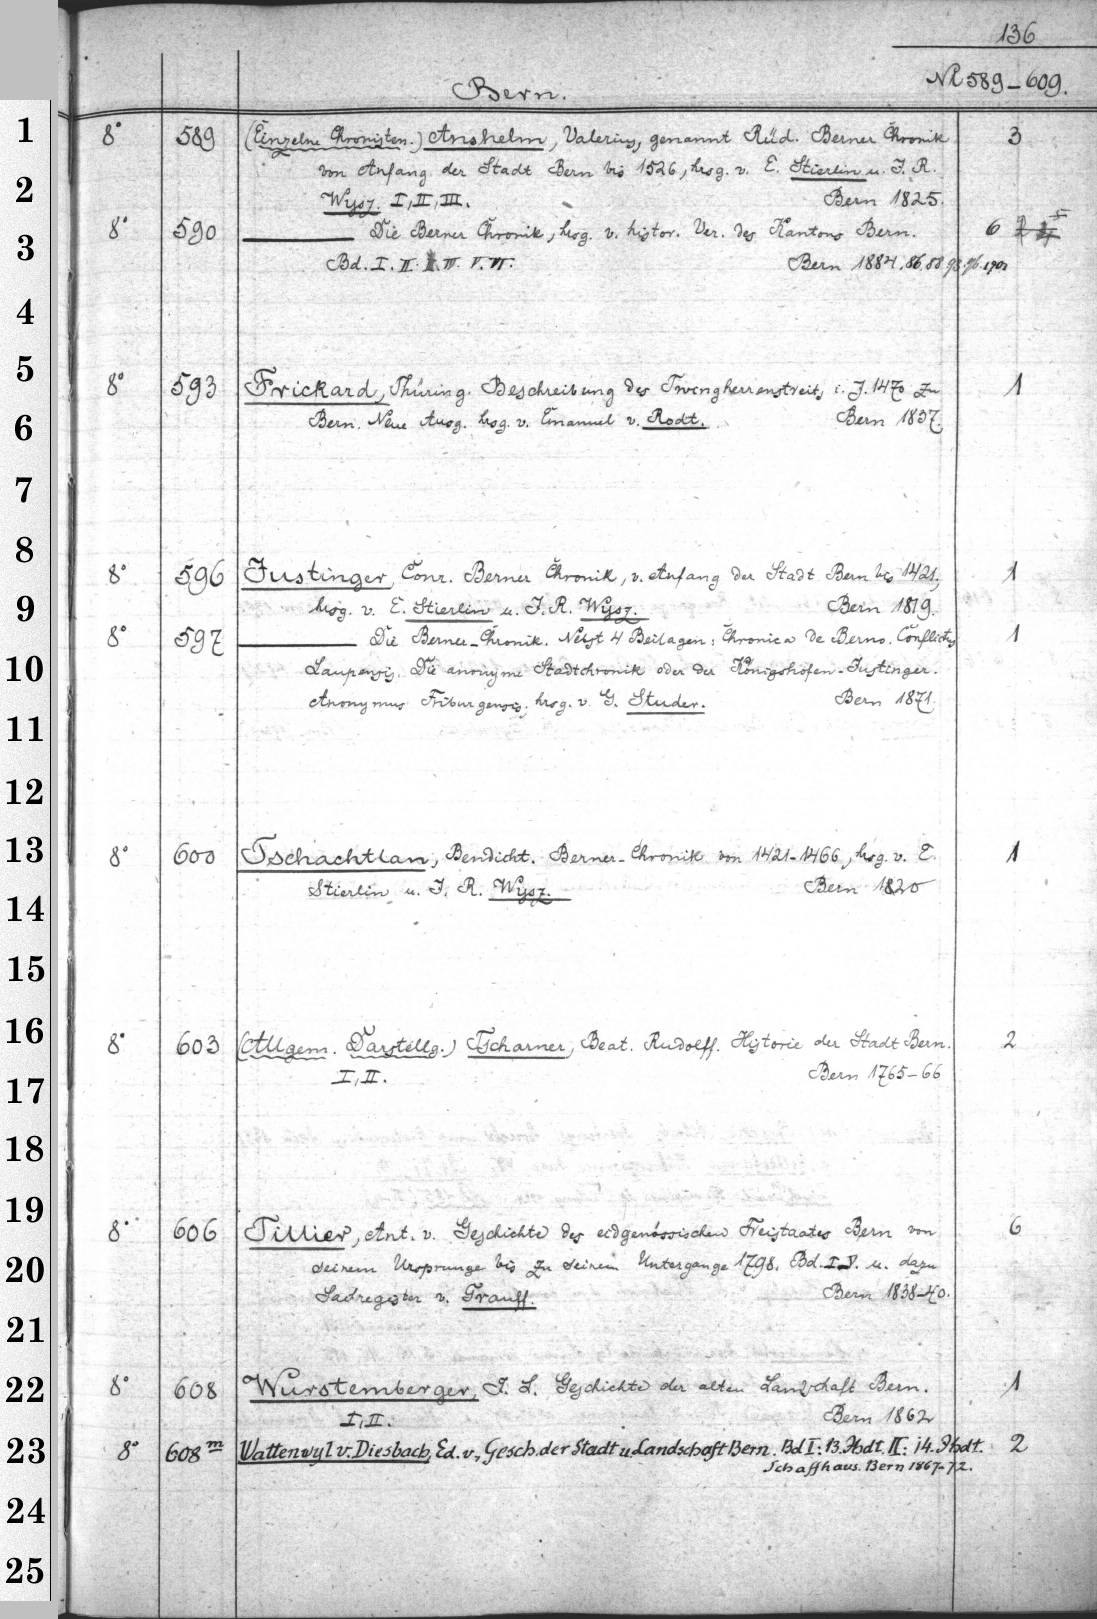 136
Bern.
No 589–609.
1
8° 589 (Einzelne Chronisten.) Anshelm, Valerius, genannt Rüd. Berner Chronik 3
von Anfang der Stadt Bern bis 1526, hrsg. v. E. Stierlin u. J. R.
2
Wysz. I, II, III. Bern 1825.
3
8° 590 ——— Die Berner Chronik, hrsg. v. histor. Ver. des Kantons Bern. 6
Bd. I. II. III. IV. V. VI. Bern 1884. 86. 88. 93. 96. 1901
4
5
8° 593 Frickard, Thüring. Beschreibung des Twingherrenstreits i. J. 1470 zu 1
6
Bern. Neue Ausg. hrsg. v. Emanuel v. Rodt. Bern 1837.
7
8
8° 596 Justinger, Conr. Berner Chronik, v. Anfang der Stadt Bern bis 1421, 1
9
hrsg. v. E. Stierlin u. J. R. Wysz. Bern 1819.
8° 597 ——— Die Berner-Chronik. Nebst 4 Beilagen: Chronica de Berno. Conflictus 1
10
Laupensis. Die anonyme Stadtchronik oder der Königshofen-Justinger.
11
Anonymus Friburgensis, hrsg. v. G. Studer. Bern 1871.
12
13
8° 600 Tschachtlan, Bendicht. Berner-Chronik von 1421–1466, hrsg. v. E. 1
14
Stierlin u. J. R. Wysz. Bern 1820
15
16
8° 603 (Allgem. Darstellg.) Tscharner, Beat. Rudolff. Historie der Stadt Bern. 2
17
I, II. Bern 1765–66
18
19
8° 606 Tillier, Ant. v. Geschichte des eidgenössischen Freistaates Bern von 6
20
seinem Ursprunge bis zu seinem Untergange 1798. Bd. I–V. u. dazu
Sachregister v. Trauff. Bern 1838–40.
21
22
8° 608 Wurstemberger, J. L. Geschichte der alten Landschaft Bern. 1
I, II. Bern 1862
23
8° 608m Wattenwyl v. Diesbach, Ed. v., Gesch. der Stadt u. Landschaft Bern. Bd I: 13. Hbdt. II: 14. Hbdt. 2
Schaffhaus. Bern 1867–72.
24
25